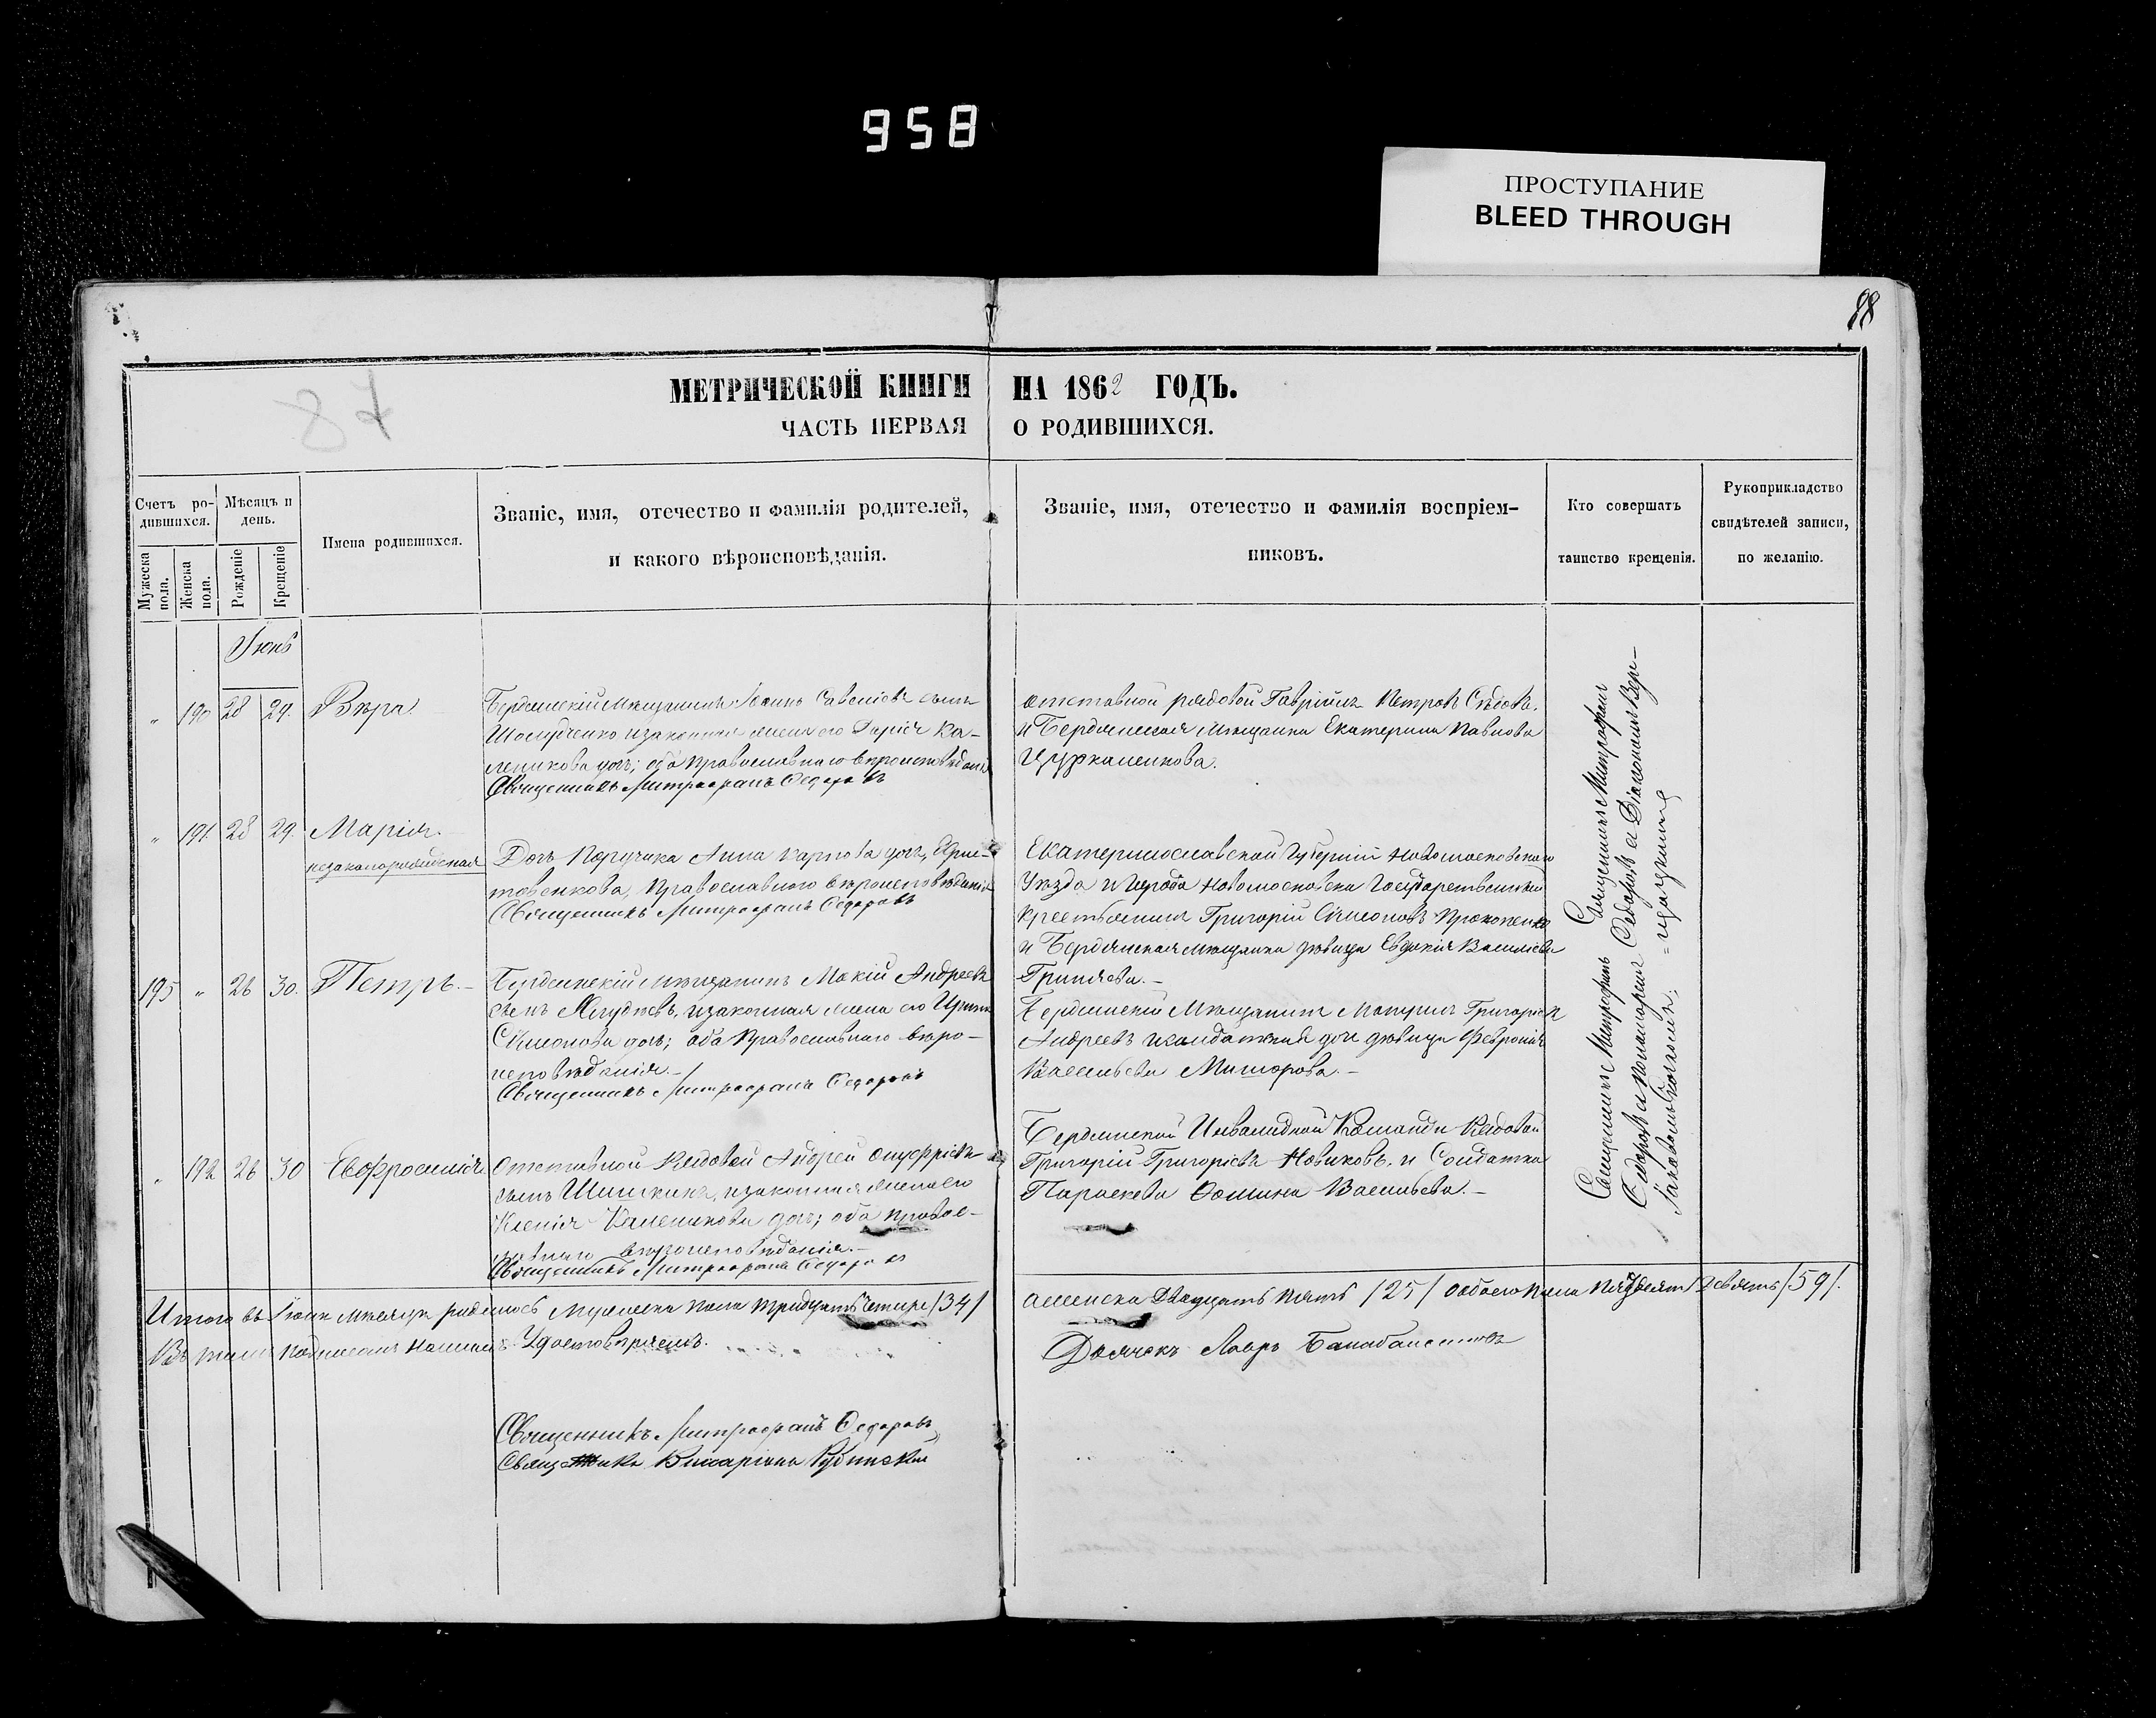 958
ПРОСТУПАНИЕ
BLEED THROUGH
88
87
МЕТРИЧЕСКОЙ КНИГИ НА 1862 ГОДЪ.
ЧАСТЬ ПЕРВАЯ О РОДИВШИХСЯ.
Счетъ ро-
дившихся.
Мужеска
пола.
Женска
пола.
Мѣсяцъ и
день.
Рожденіе
Крещеніе
Имена родившихся.
Званіе, имя, отечество и фамилія родителей,
и какого вѣроисповѣданія.
Званіе, имя, отечество и фамилія воспріем-
никовъ.
Кто совершатъ
таинство крещенія.
Рукоприкладство
свидѣтелей записи,
по желанію.
Іюнь
" 190 28 29. Вѣра
Бердянскій мѣщанинъ Іоаннъ сынъ
изаконная жена его Дарія Ка-
леникова дочь; оба православнаго вѣроисповѣданія
Священникъ Митрофанъ Ѳедоровъ
отставной рядовой Гавріилъ Петровъ Сѣдовъ.
и Бердянская мѣщанка Екатерина Павлова
Цурканенкова.
" 191. 28 29. Марія.
незаконорожденная
Дочь Поручика Анна Карпова дочь,
православнаго вѣроисповѣданія
Священникъ Митрофанъ Ѳедоровъ
Екатеринославской Губерніи Новомосковскаго
Уѣзда и города Новомосковска Государственный
крестьянинъ Григорій Сѵмеоновъ Прокопенко
и Бердянская мѣщанка дѣвица Евдокія Василіева
Гриняева.-
195 " 26 30. Петръ.-
Бердянскій мѣщанинъ Мокій Андреевъ
сынъ изаконная жена его Ирина
Сѵмеонова дочь; оба Православнаго вѣро-
исповѣданія.-
Священникъ Митрофанъ Ѳедоровъ
Бердянскій Мѣщанинъ Григоріевъ
Андреевъ исолдатская дочь дѣвица Февронія
Васильева
" 192 26 30 Евфросинія
Отставной Рядовой Андрей Онуфріевъ
сынъ Шишкинъ, изаконная жена его
Ксенія Каленикова дочь; оба правос-
лавнаго вѣроисповѣданія.-
Священникъ Митрофанъ Ѳедоровъ
Бердянской Инвалидной Команды Рядовой
Григорій Григоріевъ Новиковъ, и Солдатка
Параскева Ѳомина Васильева.-
Священникъ Митрофанъ
Ѳедоровъ
Священникъ Митрофанъ
Ѳедоровъ съ Діакономъ
Итого въ Іюнѣ мѣсяцѣ родилось Мужеска пола тридцать четыре /34/ аженска Двадцать пять /25/ обоего пола Пятьдесятъ девять /59/.
Удостовѣряемъ.
Священникъ Митрофанъ Ѳедоровъ
Дьячокъ Лавръ